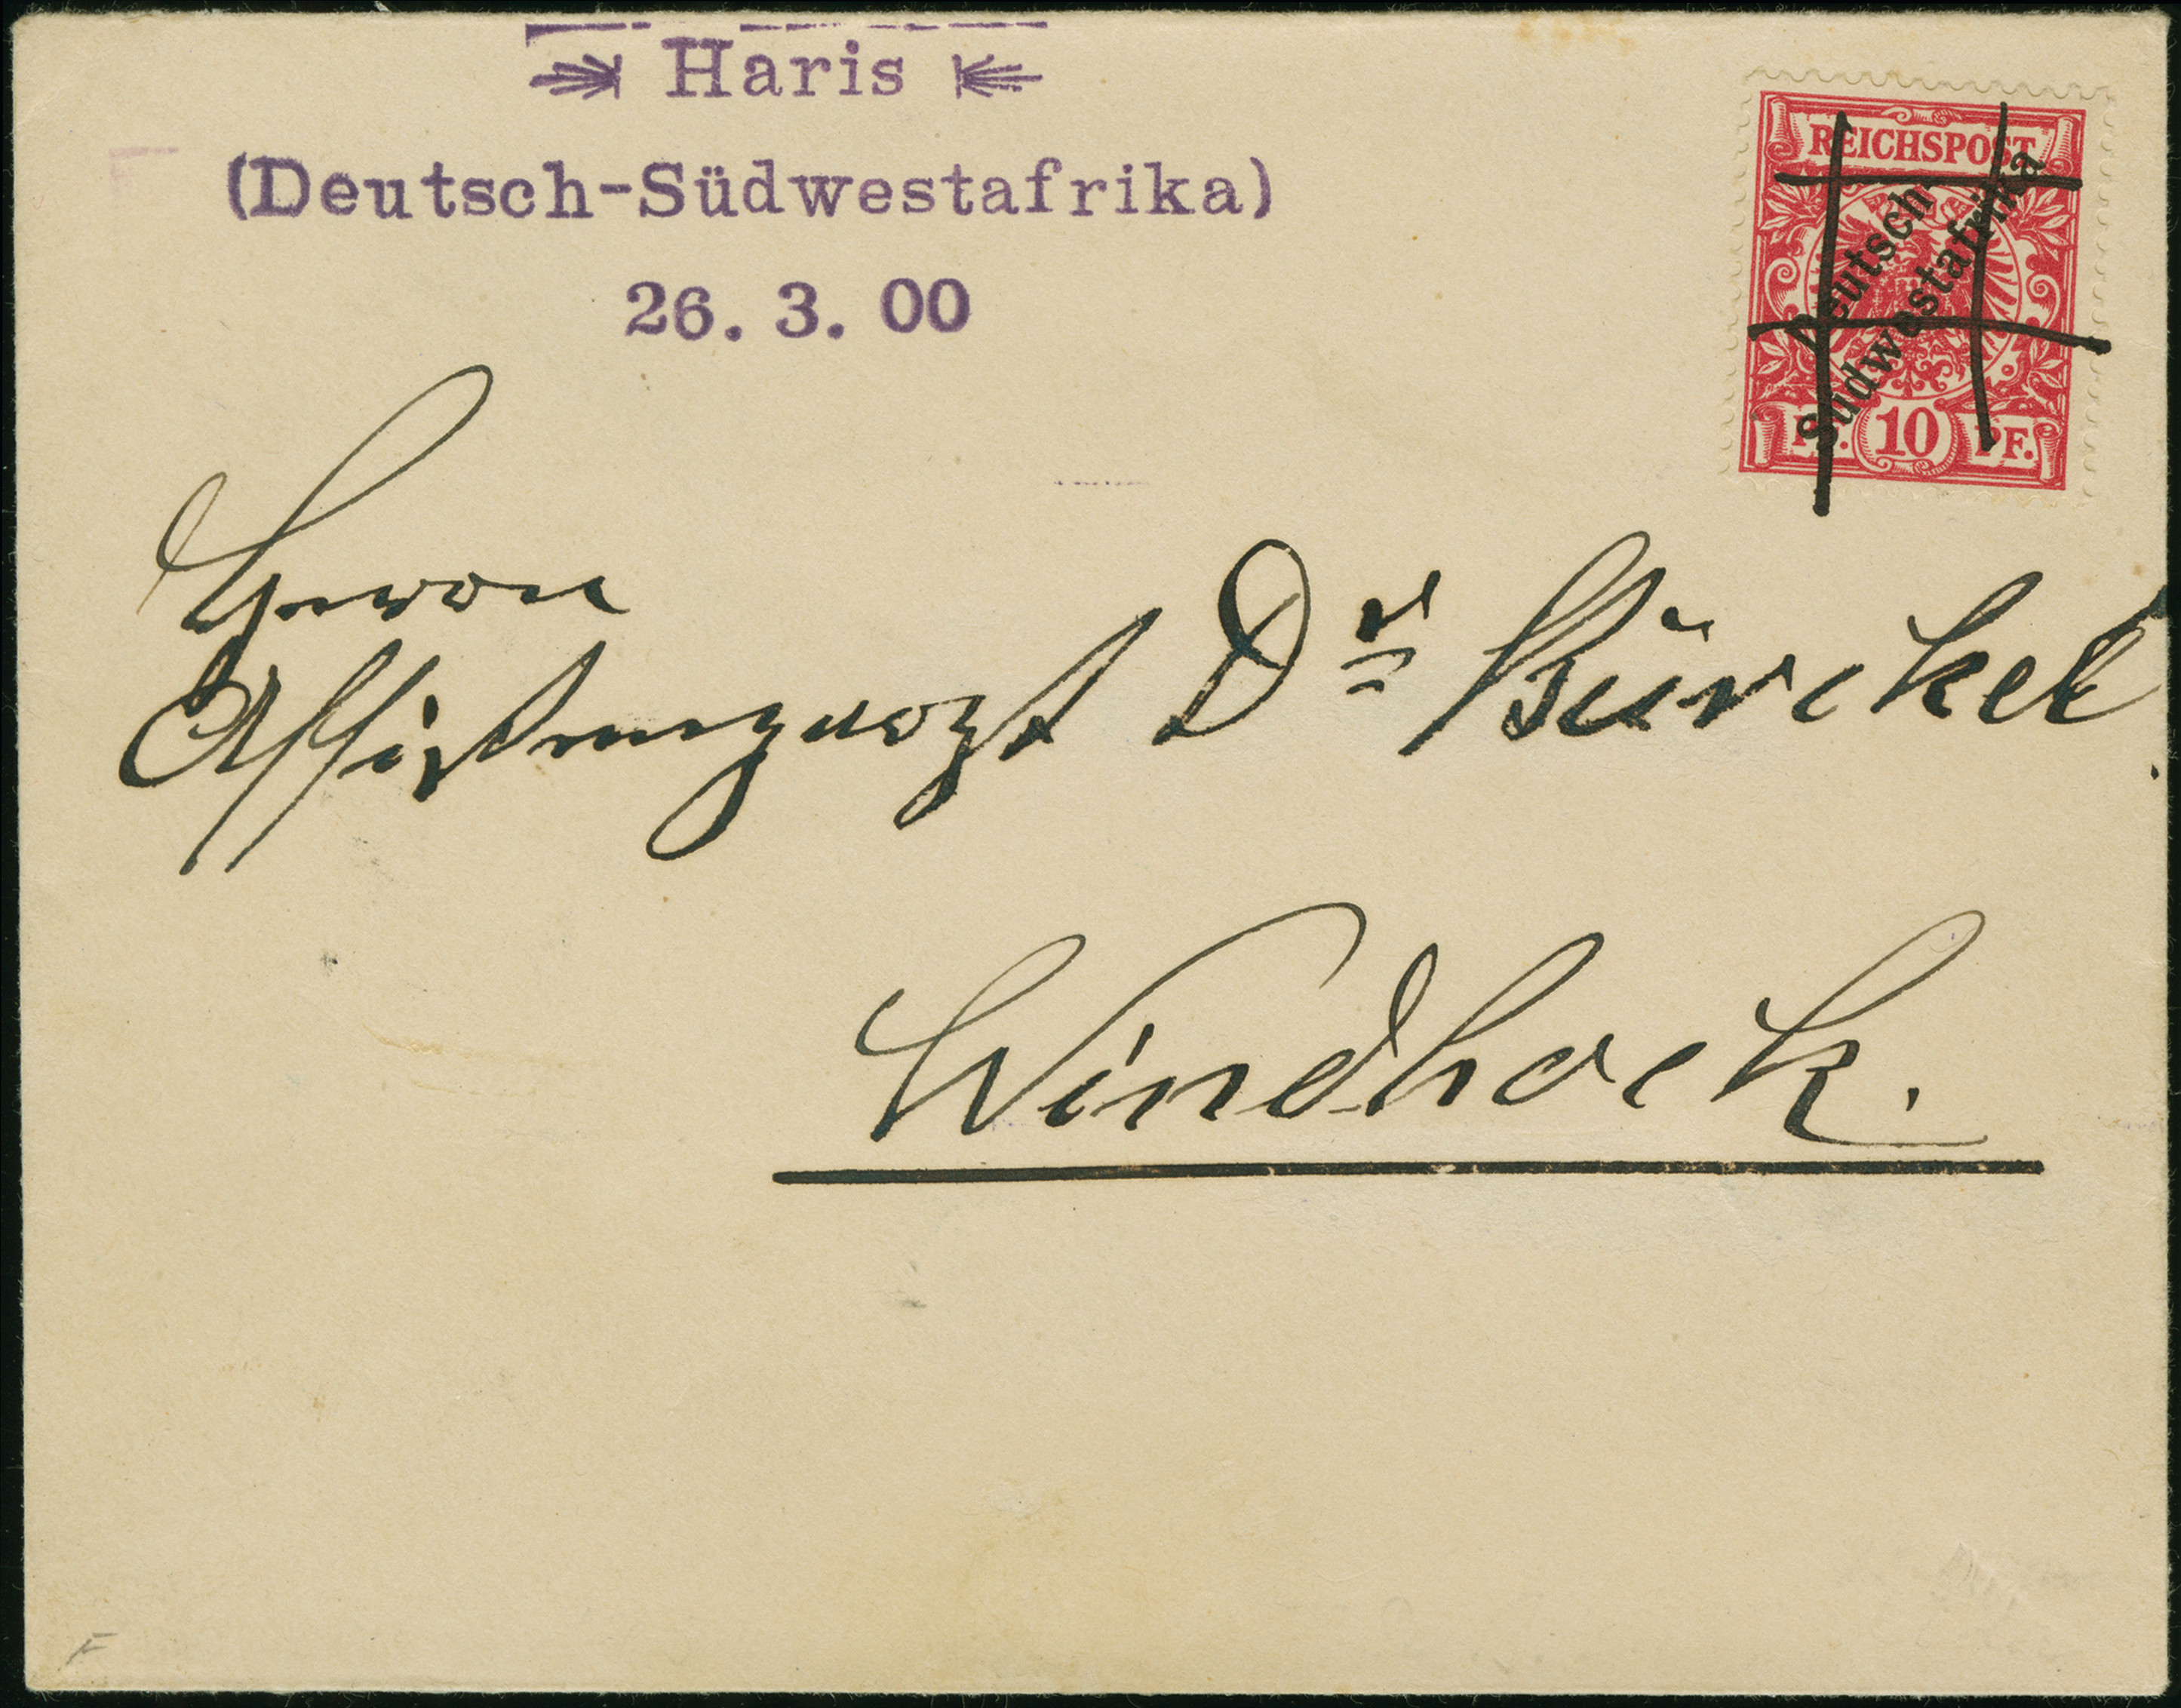 Haris
(Deutsch-Südwestafrika)
26. 3. 00
REICHSPOST
Deutsch-
Südwestafrika
PF. 10 PF.
Herrn
Assistenzarzt Dr Bürckel.
Windhoek.